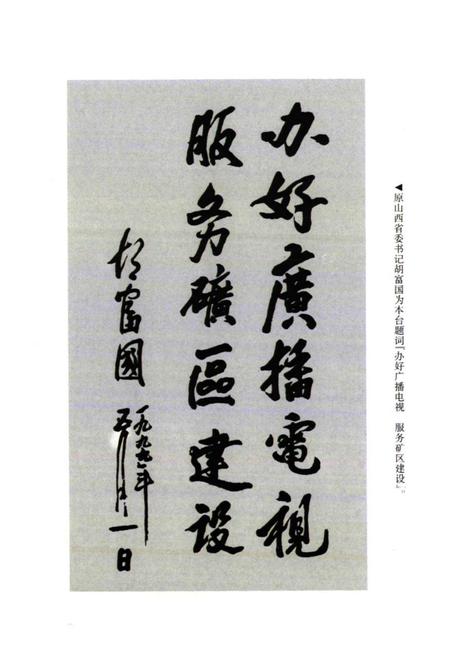 ◀原山西省委书记胡富国为本台题词“办好广播电视　服务矿区建设”。
办好廣播電視
服务礦區建设
胡富國
一九九七年
五月一日